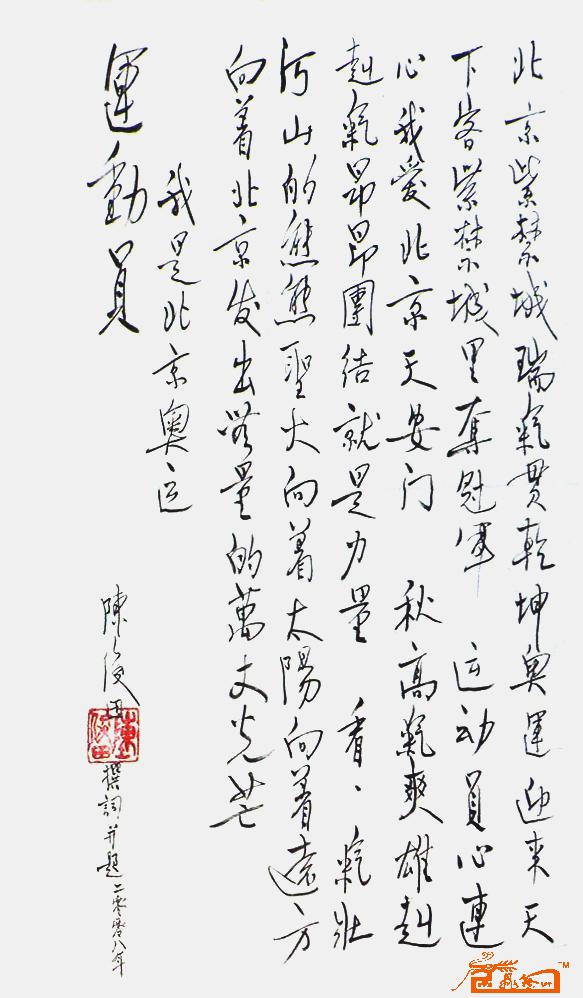 北京紫禁城瑞氣貫乾坤奥運迎来天
下客紫禁城里奪冠軍 运动員心連
心我愛北京天安门 秋高氣爽雄赳
赳氣昂昂團结就是力量 看、氣壮
河山的熊熊聖火向着太陽向着遠方
向着北京发出無量的萬丈光芒
我是北京奥运
運動員
陳俊田
撰詞并题二零零八年